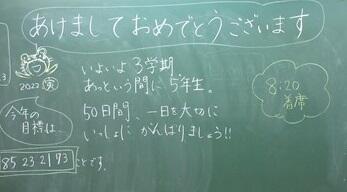 あけましておめでとうございます
いよいよ3学期
あっという間に5年生。
2022 寅
8:20
着席
今年の
目標は…
50日間、一日を大切に
いっしょに がんばりましょう!!
85 23 21 73 ことです。